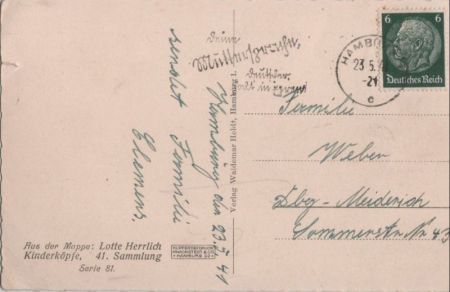 Deine
Muttersprache,
deutscher
6 6
Deutsches Reich
HAMBU
23.5.
-21
c
Familie
Weber
Dbg-Meiderich
Sommerstr. Nr 43
Hamburg den 23.5.41
sendet Familie
Ehemens.
Verlag Waldemar Holdt, Hamburg 1.
Aus der Mappe: Lotte Herrlich
Kinderköpfe, 41. Sammlung
Serie 81.